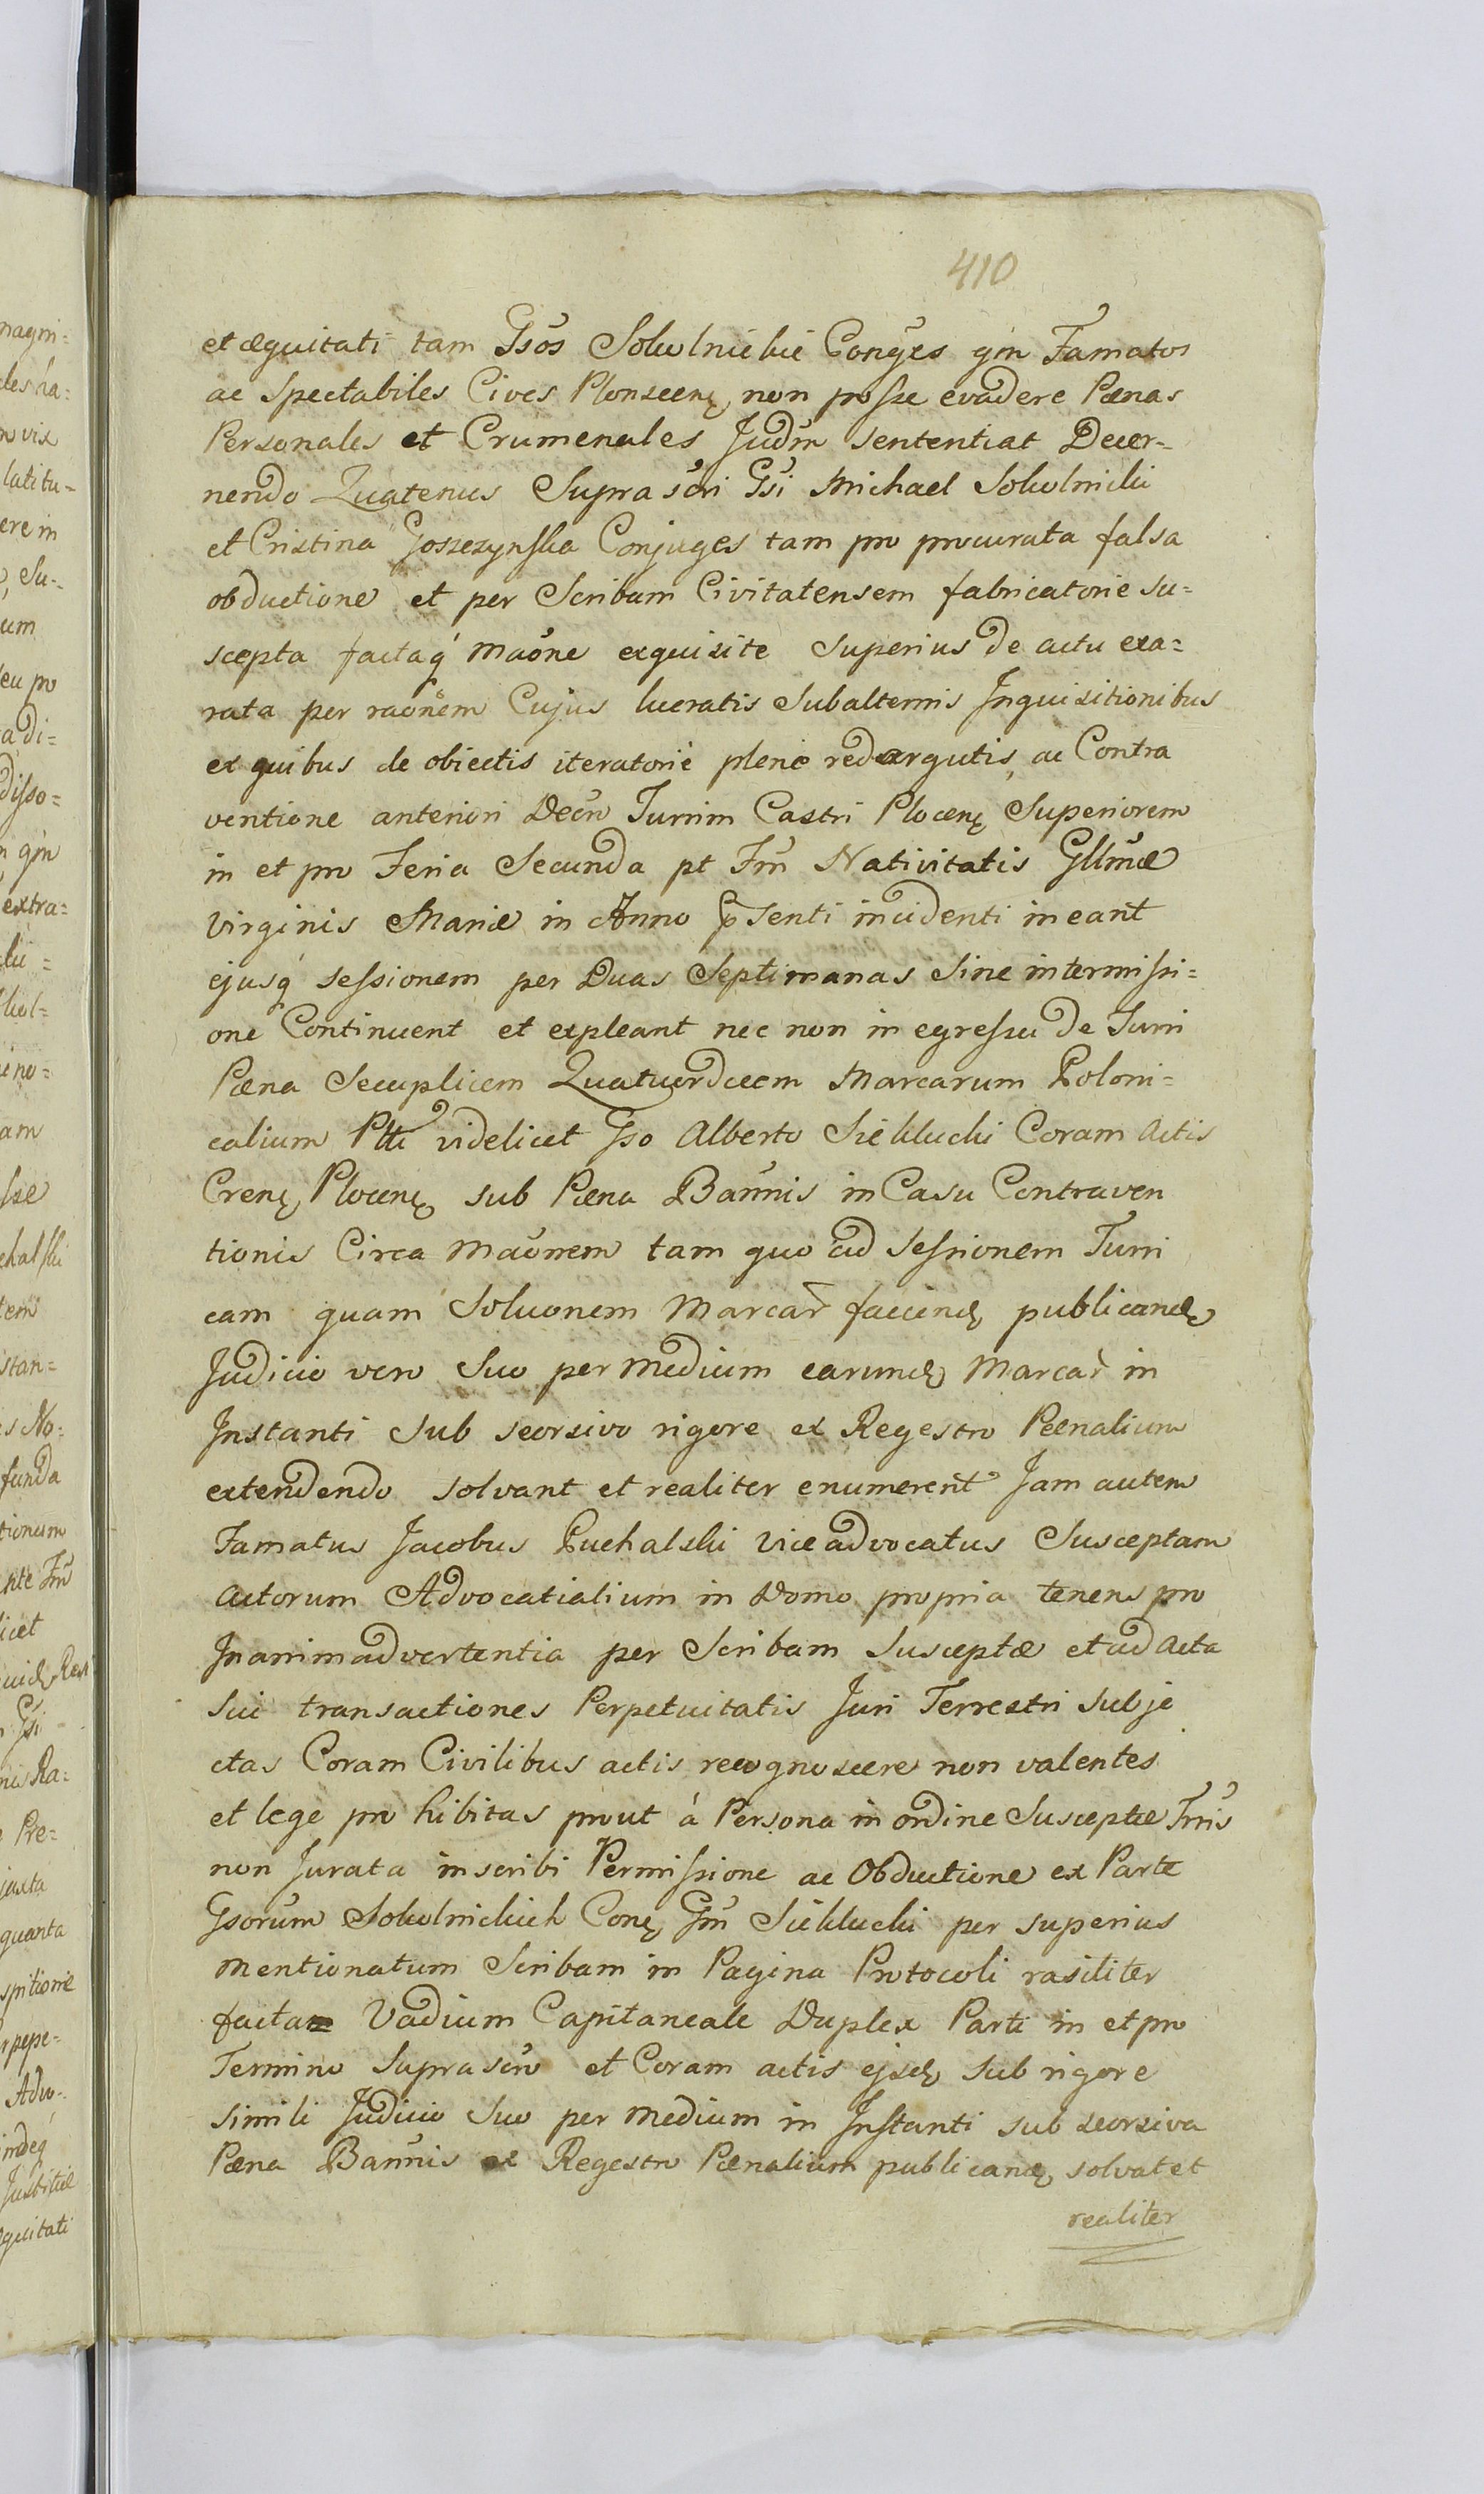 410
et æquitati tam Gsõs Sokolnickie Conges qm̃ Famatos
ac Spectabiles Cives Plonscenę non posse evadere Pœnas
Personales et Crumenales Judm̃ sententiat Decer-
nendo Quatenus Supra scri Gsi Michael Sokolnicki
et Cristina Goszczynska Conjuges tam pro procurata falsa
obductione et per Scribam Civitatensem fabricatorie su=
scepta factaq́ maõne exquisite Superius de actu exa=
rata per raõnem Cujus lucratis Subalternis Inquisitionibus
ex quibus de obiectis iteratorie plene redargutis, ac Contra
ventione anteriori Decr̃o Turrim Castri Plocenę Superiorem
in et pro Feria Secunda pt Fm̃ Nativitatis Gllmæ
Virginis Mariæ in Anno p̃senti incidenti ineant
ejusq́ sessionem per Duas Septimanas Sine intermissi=
one Continuent et expleant nec non in egressu de Turri
Pæna Secuplicem Quatuordecem Marcarum Poloni=
calium Ptti videlicet Gso Alberto Siekluchi Coram Actis
Crenę Plocenę sub Pæna Bannis in Casu Contraven
tionis Circa maõnem tam quo ad Sessionem Turri
cam quam Soluonem Marcar̃ faciendę publicandę
Judicio vero Suo per medium earundę Marcar̃ in
Instanti Sub seorsivo rigore ex Regestro Pœnalium
extendendo solvant et realiter enumerent Jam autem
Famatus Jacobus Puchalski viceadvocatus Susceptam
Actorum Advocatialium in Domo propria tenens pro
Inanimadvertentia per Scribam Susceptæ et ad Acta
Sui transactiones Perpetuitatis Juri Terrestri Subje
ctas Coram Civilibus actis recognoscere non valentes
et lege pro hibitas prout á Persona in ordine Susceptæ Fm̃is
non Jurata inscribi Permissione ac Obductione ex Parte
Gsorum Sokolnickich Conę Gm̃ Siekluchi per superius
mentionatum Scribam in Pagina Protocoli rasiliter
facta Vadium Capitaneale Duplex Parti in et pro
Termino Suprascro et Coram actis ejsdę sub rigore
simili Judicio Suo per medium in Instanti sub seorsiva
Pæna Bannis ex Regestro Pœnalium publicandę solvat et
realiter